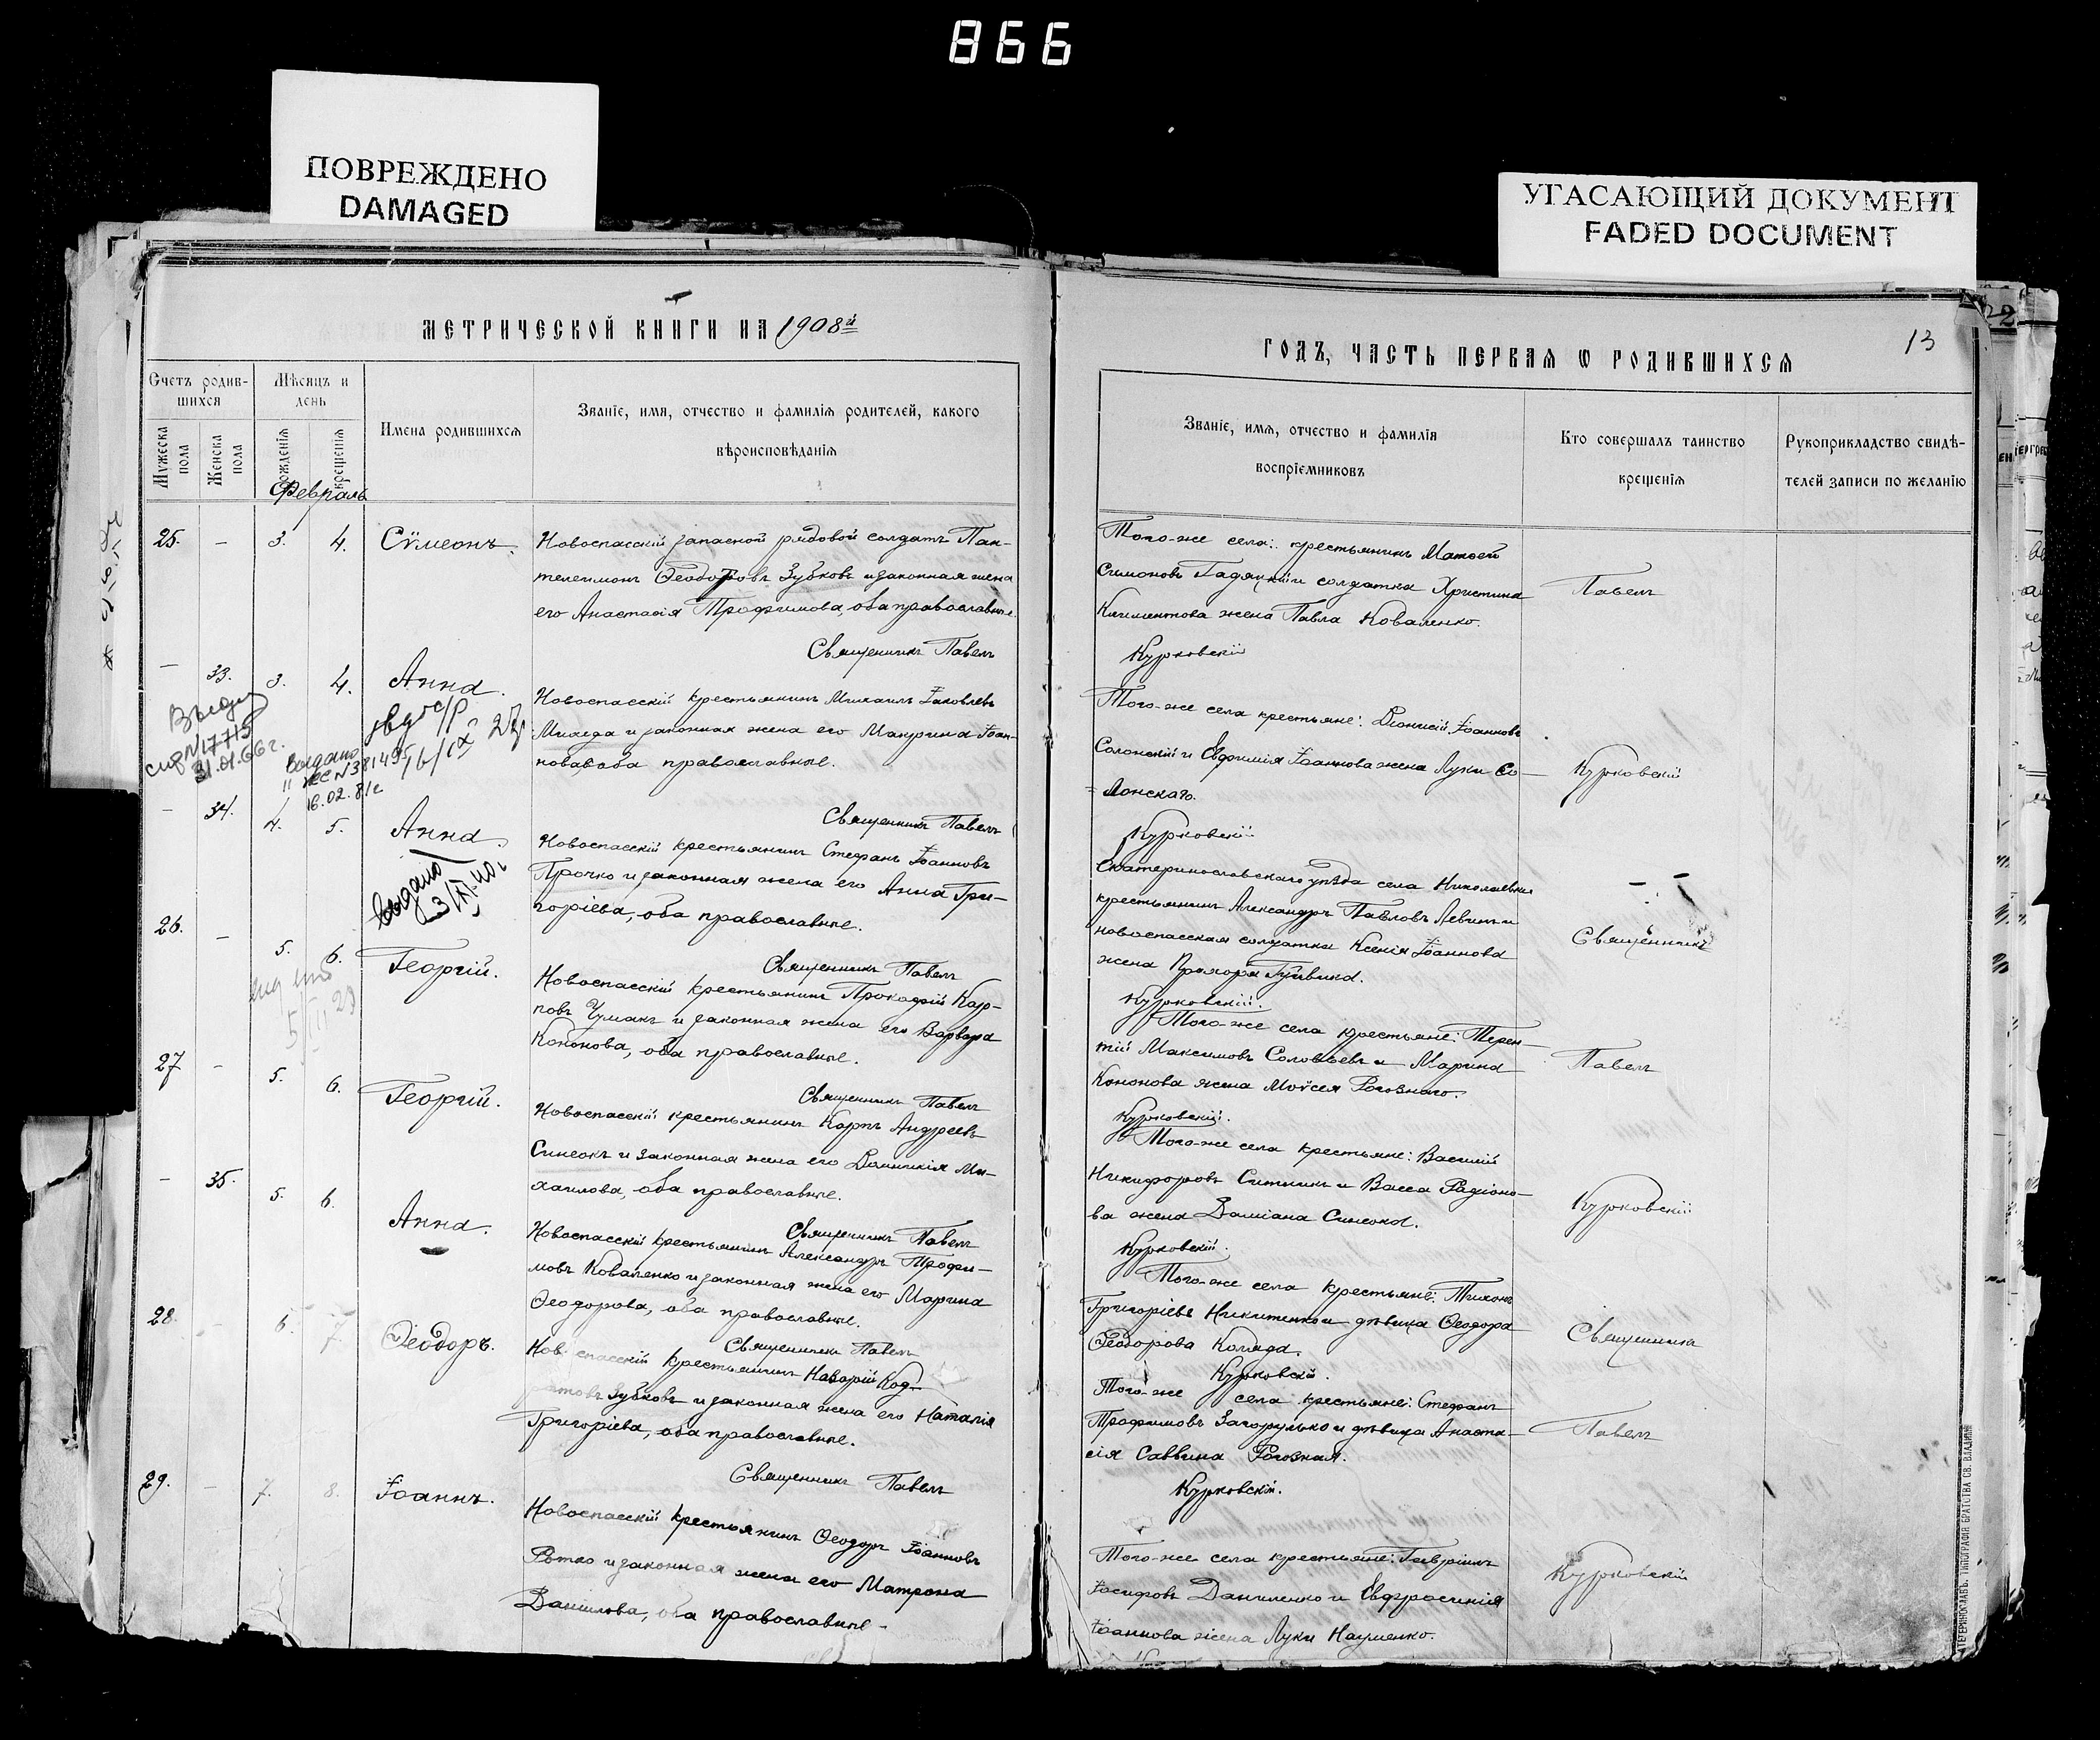 866
ПОВРЕЖДЕНО
DAMAGED
УГАСАЮЩИЙ ДОКУМЕНТ
FADED DOCUMENT
МЕТРИЧЕСКОЙ КНИГИ НА 1908й
Счетъ родив-
шихся
Мѣсяцъ и
день
Мужеска
пола
Женска
пола
рожденія
крещенія
Имена родившихся
Званіе, имя, отчество и фамилія родителей, какого
вѣроисповѣданія
Февраль
25. — 3. 4. Сѵмеонъ.
Новоспасскій запасной рядовой солдатъ Пан-
телеимонъ Ѳеодоровъ Зубковъ и законная жена
его Анастасія Трофимова, оба православные.
Священникъ Павелъ
— 33. 3. 4. Анна.
Новоспасскій крестьянинъ Михаилъ Іаковлевъ
и законная жена его Макрина Іоан-
нова, оба православные.
Священникъ Павелъ
N 17715
31.01.66г.
Выдано
N 381495
16.02.81г
— 34. 4. 5. Анна.
выдано
Новоспасскій крестьянинъ Стефанъ Іоанновъ
Прочко и законная жена его Анна Гри-
горіева, оба православные.
Священникъ Павелъ
26. — 5. 6. Георгій.
Новоспасскій крестьянинъ Прокофій Кар-
повъ Чумакъ и законная жена его Варвара
Кононова, оба православные.
Священникъ Павелъ
27 — 5. 6. Георгій.
Новоспасскій крестьянинъ Карпъ Андреевъ
Синеокъ и законная жена его Домникія Ми-
хаилова, оба православные.
Священникъ Павелъ
— 35. 5. 6. Анна.
Новоспасскій крестьянинъ Александръ Трофи-
мовъ Коваленко и законная жена его Марина
Ѳеодорова, оба православные.
Священникъ Павелъ
28. — 6. 7. Ѳеодоръ.
Новоспасскій крестьянинъ Назарій Код-
ратовъ Зубковъ и законная жена его Наталія
Григоріева, оба православные.
Священникъ Павелъ
29. — 7. 8. Іоаннъ.
Новоспасскій крестьянинъ Ѳеодоръ Іоанновъ
и законная жена его Матрона
Даніилова, оба православные.
ГОДЪ, ЧАСТЬ ПЕРВАЯ Ѡ РОДИВШИХСЯ
13
Званіе, имя, отчество и фамилія
воспріемниковъ
Кто совершалъ таинство
крещенія
Рукоприкладство свидѣ-
телей записи по желанію
Того-же села: крестьянинъ Матѳей
Симоновъ Гадяцкій и солдатка Христина
Климентова жена Павла Коваленко.
Курковскій
Павелъ
Того-же села крестьяне: Діонисій Іоанновъ
Солонскій и Евфимія Іоаннова жена Луки Со-
лонскаго.
Курковскій
Курковскій
Екатеринославскаго уѣзда села Николаевки
крестьянинъ Александръ Павловъ Левинъ и
новоспасская солдатка Ксенія Іоаннова
жена Прохора
Курковскій.
Священникъ
Того-же села крестьяне: Терен-
тій Максимовъ Соловьевъ и Марина
Кононова жена Моѵсея Роговнаго.
Курковскій.
Павелъ
Того-же села крестьяне: Василій
Никифоровъ Ситникъ и Васса Радіоно-
ва жена Даміана Синеока.
Курковскій.
Курковскій
Того-же села крестьяне: Тихонъ
Григоріевъ Никитенко и дѣвица Ѳеодора
Ѳеодорова Коляда.
Курковскій.
Священникъ
Того-же села крестьяне: Стефанъ
Трофимовъ Загорулько и дѣвица Анаста-
сія Саввина Роговная.
Курковскій.
Павелъ
Того-же села крестьяне: Гавріилъ
Іосифовъ Даниленко и Евфросинія
Іоаннова жена Луки Науменко.
Курковскій